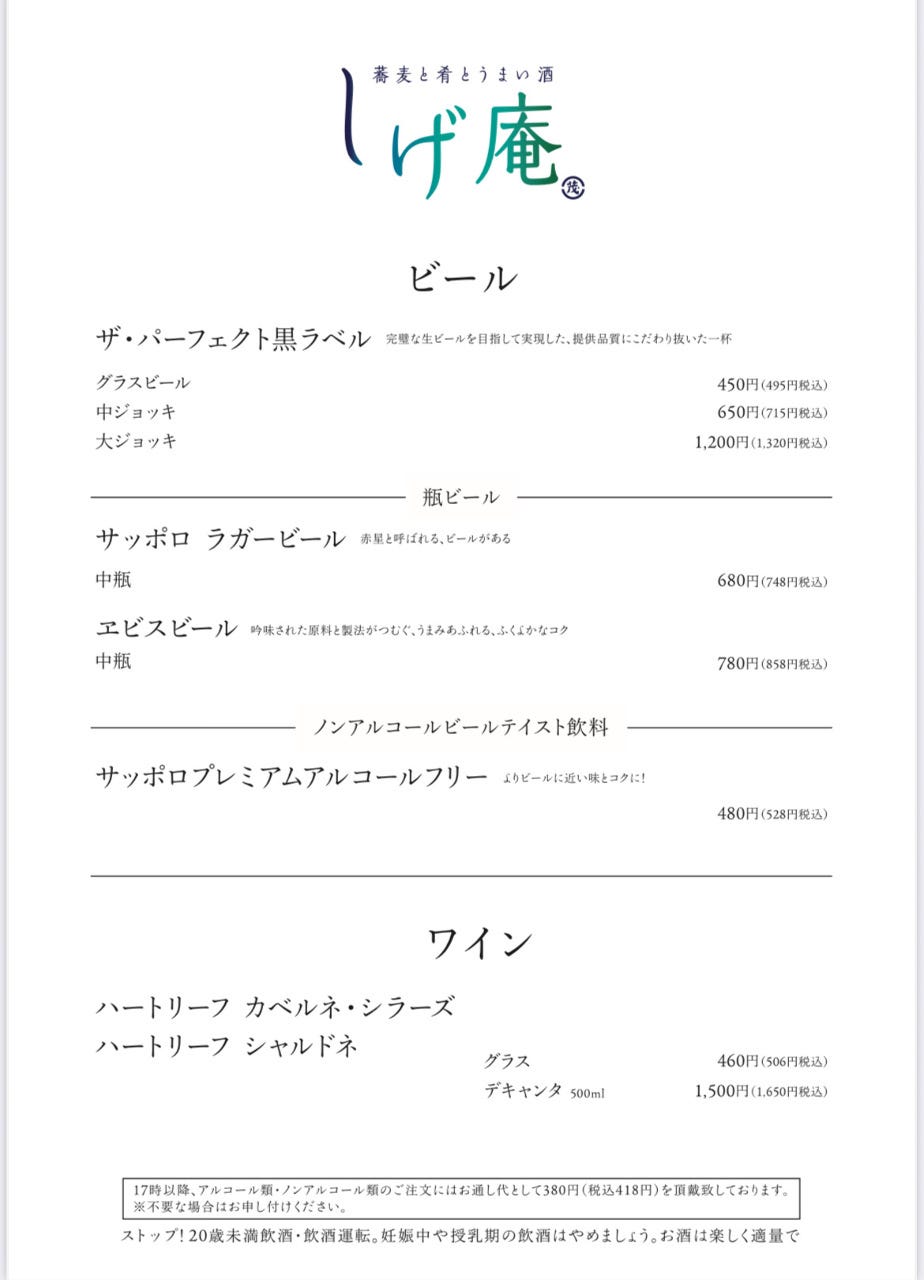 蕎麦と肴とうまい酒
しげ庵
茂
ビール
ザ・パーフェクト黒ラベル 完璧な生ビールを目指して実現した、提供品質にこだわり抜いた一杯
グラスビール 450円(495円税込)
中ジョッキ 650円(715円税込)
大ジョッキ 1,200円(1,320円税込)
瓶ビール
サッポロ ラガービール 赤星と呼ばれる、ビールがある
中瓶 680円(748円税込)
ヱビスビール 吟味された原料と製法がつむぐ、うまみあふれる、ふくよかなコク
中瓶 780円(858円税込)
ノンアルコールビールテイスト飲料
サッポロプレミアムアルコールフリー よりビールに近い味とコクに!
480円(528円税込)
ワイン
ハートリーフ カベルネ・シラーズ
ハートリーフ シャルドネ
グラス 460円(506円税込)
デキャンタ 500ml 1,500円(1,650円税込)
17時以降、アルコール類・ノンアルコール類のご注文にはお通し代として380円(税込418円)を頂戴致しております。
※不要な場合はお申し付けください。
ストップ!20歳未満飲酒・飲酒運転。妊娠中や授乳期の飲酒はやめましょう。お酒は楽しく適量で